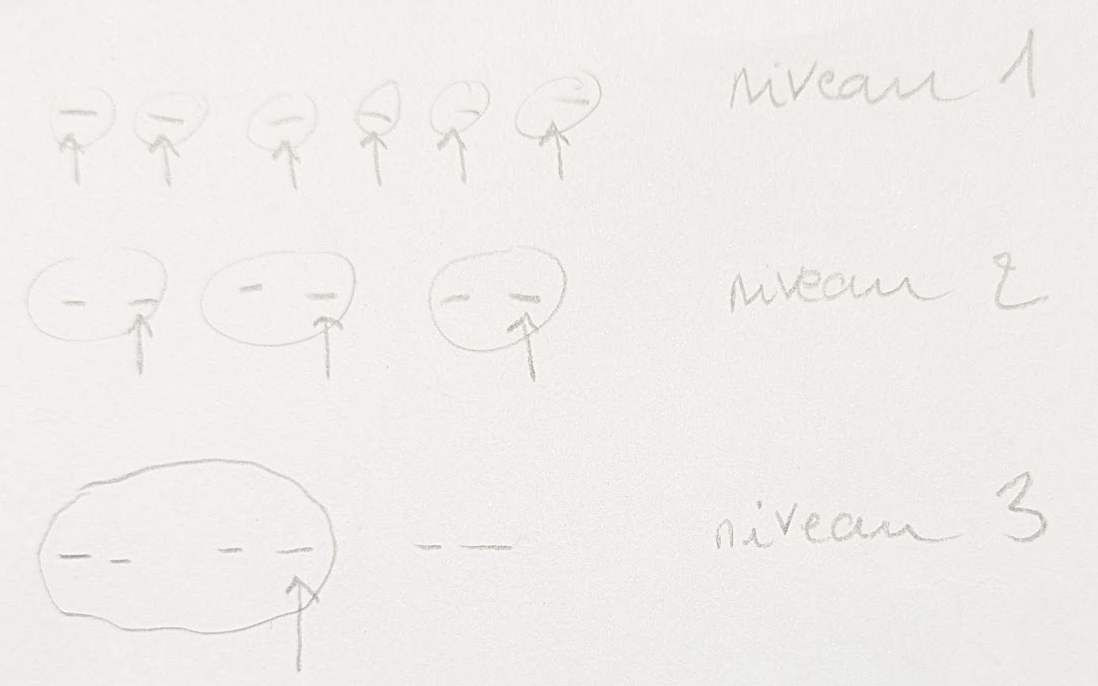 niveau 1
niveau 2
niveau 3